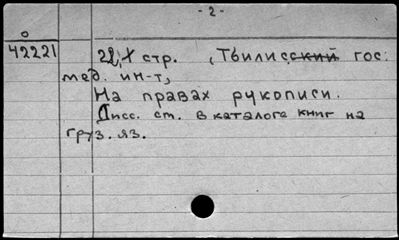 - 2 -
0
42221
22, X стр. , Тбилисский гос.
мед. ин-т,
На правах рукописи.
Дисс. см. в каталоге книг на
груз. яз.